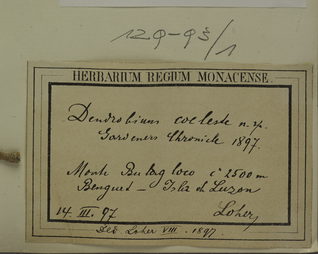 129-93/1
HERBARIUM REGIUM MONACENSE.
Dendrobium coeleste n. sp.
Gardeners Chronicle 1897.
Monte Bulag loco c 2500 m
Benguet – Isla de Luzon
14. III. 97. Loher
Ded. Loher VIII. 1897